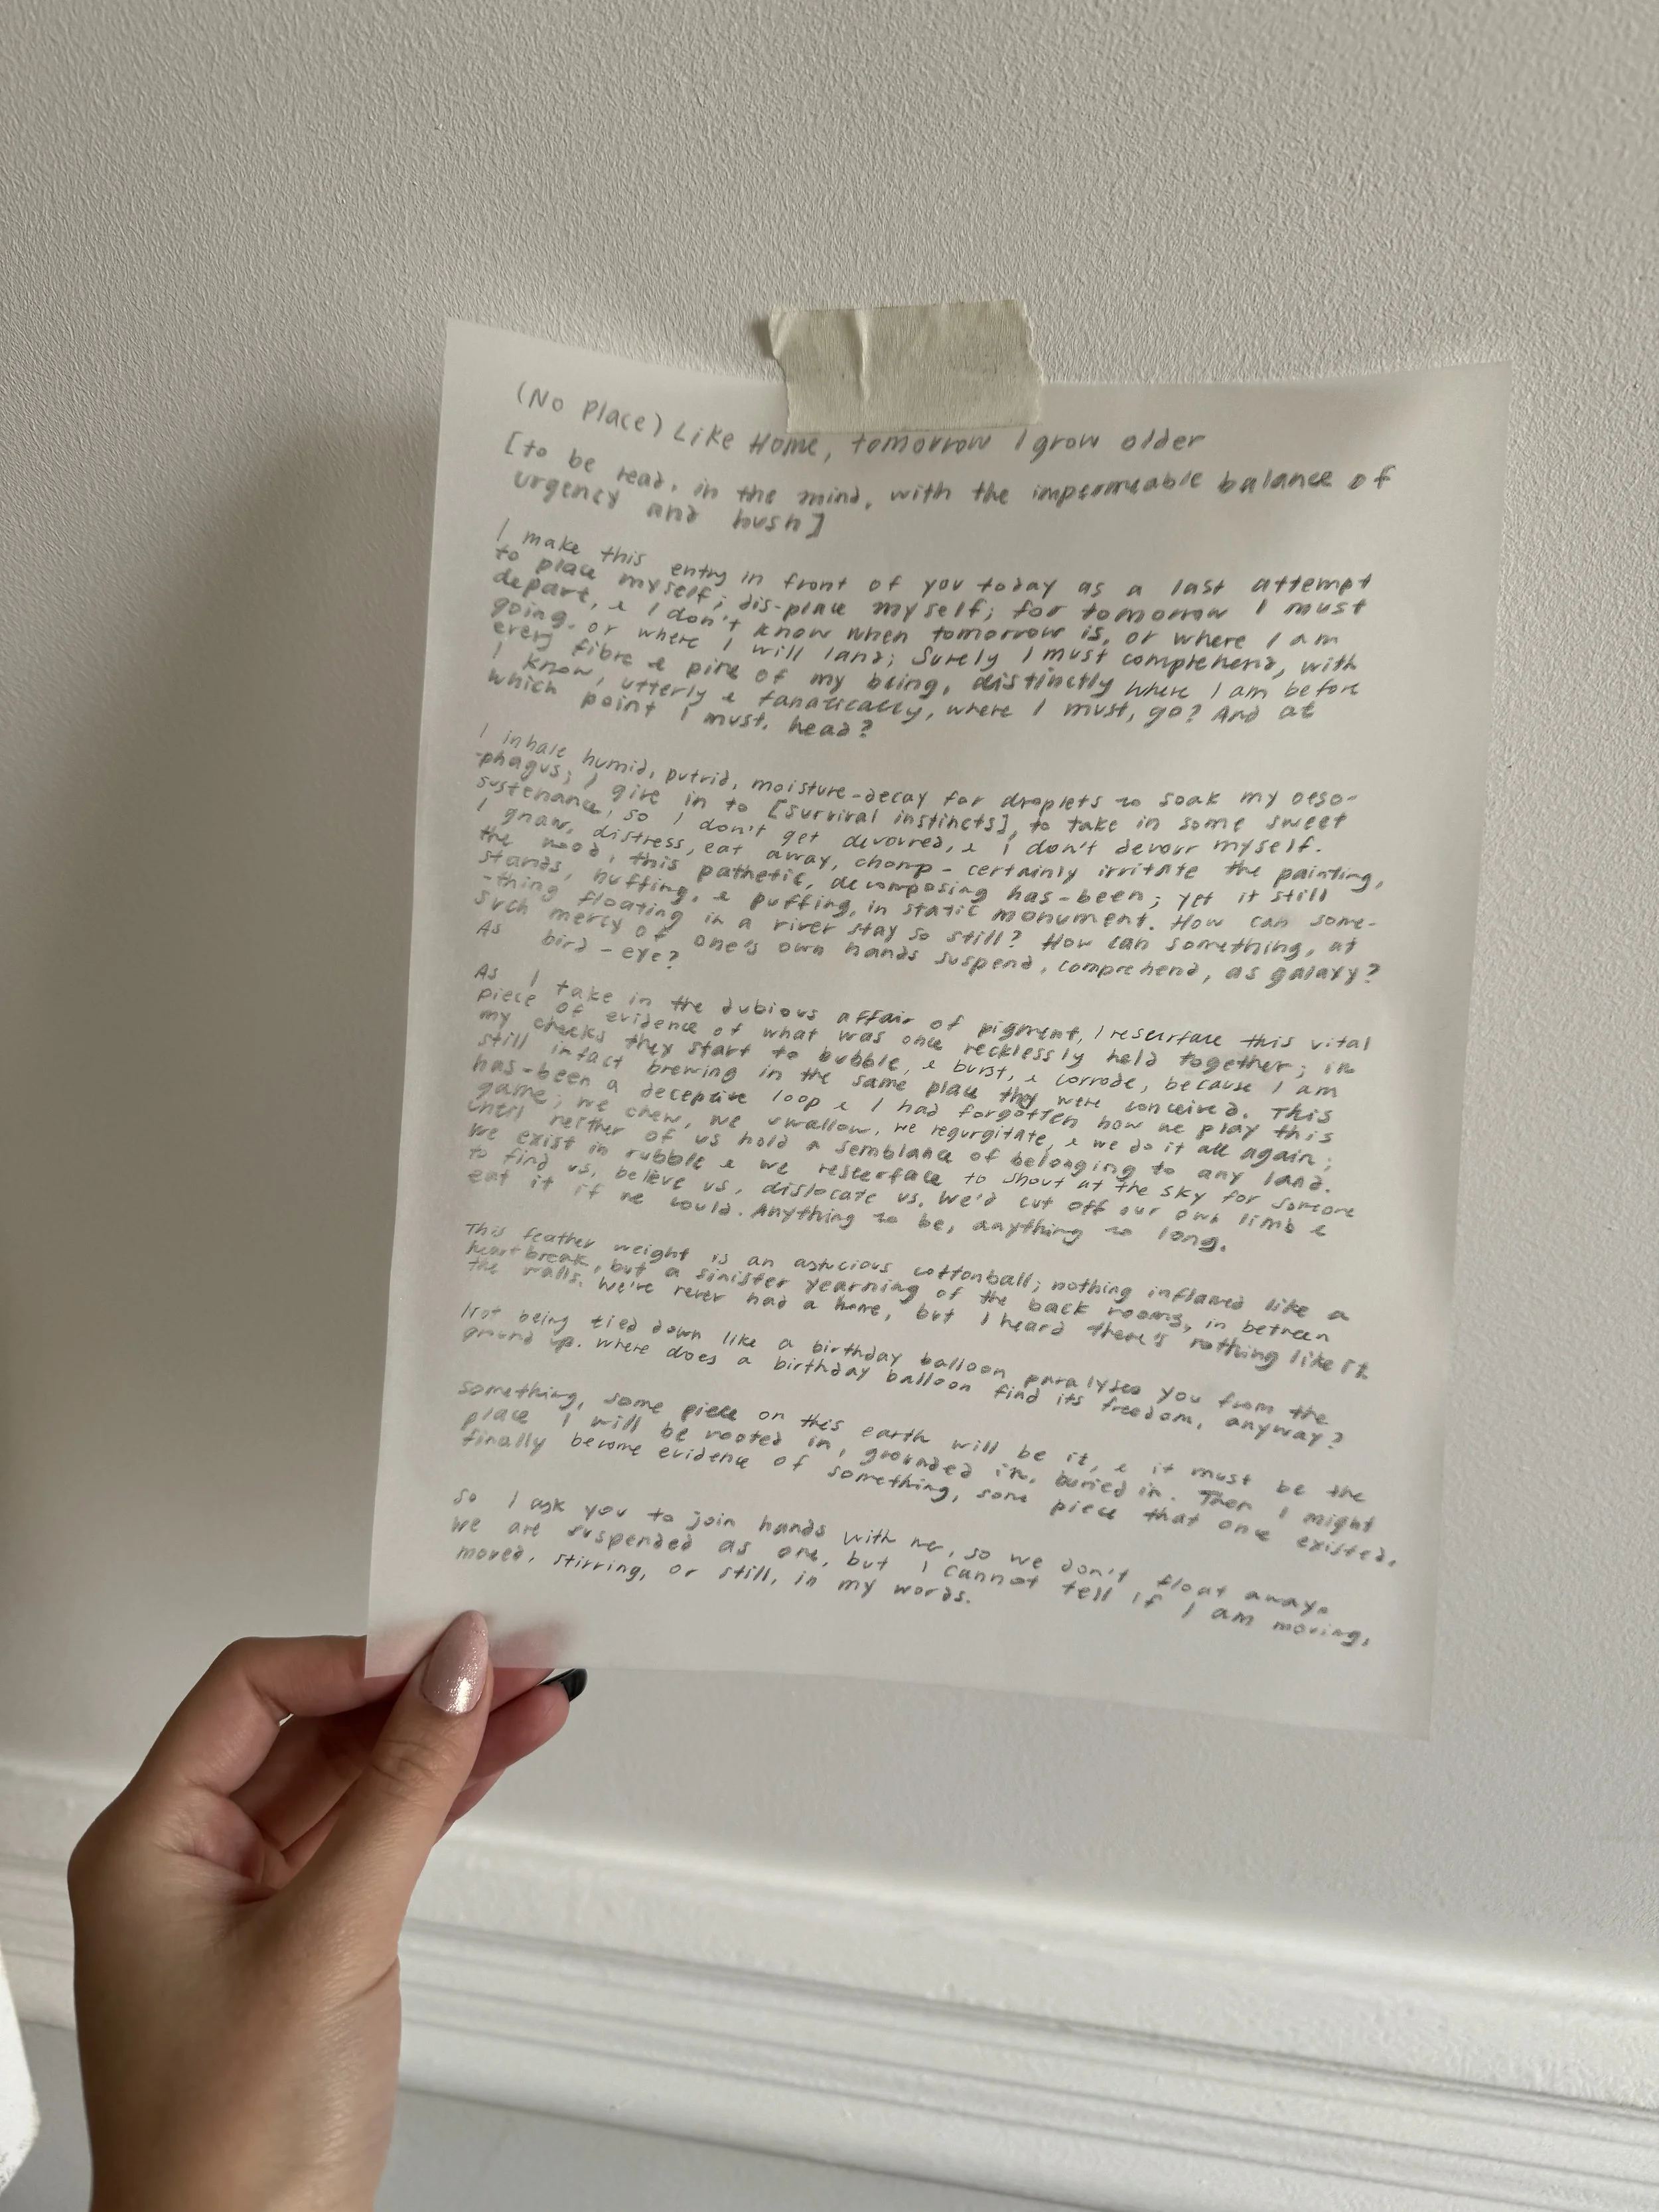 (No Place) Like Home, tomorrow I grow older
[to be read, in the mind, with the impermeable balance of
urgency and hush]
I make this entry in front of you today as a last attempt
to place myself; dis-place myself; for tomorrow I must
depart, & I don't know when tomorrow is, or where I am
going, or where I will land; Surely I must comprehend, with
every fibre & pine of my being, distinctly where I am before
I know, utterly & fanatically, where I must, go? And at
which point I must, head?
I inhale humid, putrid, moisture-decay for droplets to soak my oeso-
-phagus; I give in to [survival instincts], to take in some sweet
sustenance, so I don't get devoured, & I don't devour myself.
I gnaw, distress, eat away, chomp - certainly irritate the painting,
the wood, this pathetic, decomposing has-been; yet it still
stands, huffing, & puffing, in static monument. How can some-
-thing floating in a river stay so still? How can something, at
such mercy of one's own hands suspend, comprehend, as galaxy?
As bird-eye?
As I take in the dubious affair of pigment, I resurface this vital
piece of evidence of what was once recklessly held together; in
my cheeks they start to bubble, & burst, & corrode, because I am
still intact brewing in the same place they were conceived. This
has-been a deceptive loop & I had forgotten how we play this
game; we chew, we swallow, we regurgitate, & we do it all again;
until neither of us hold a semblance of belonging to any land.
We exist in rubble & we reserface to shout at the sky for someone
to find us, believe us, dislocate us. We'd cut off our own limb &
eat it if we could. Anything to be, anything to long.
This feather weight is an astucious cottonball; nothing inflamed like a
heartbreak, but a sinister yearning of the back rooms, in between
the walls. We've never had a home, but I heard there's nothing like it.
Not being tied down like a birthday balloon paralyses you from the
ground up. Where does a birthday balloon find its freedom, anyway?
something, some piece on this earth will be it, & it must be the
place I will be rooted in, grounded in, buried in. Then I might
finally become evidence of something, some piece that once existed.
So I ask you to join hands with me, so we don't float away.
We are suspended as one, but I cannot tell if I am moving,
moved, stirring, or still, in my words.